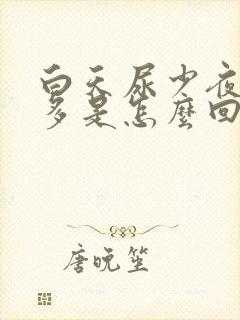 白天尿少夜
多是怎麼回
唐晚笙